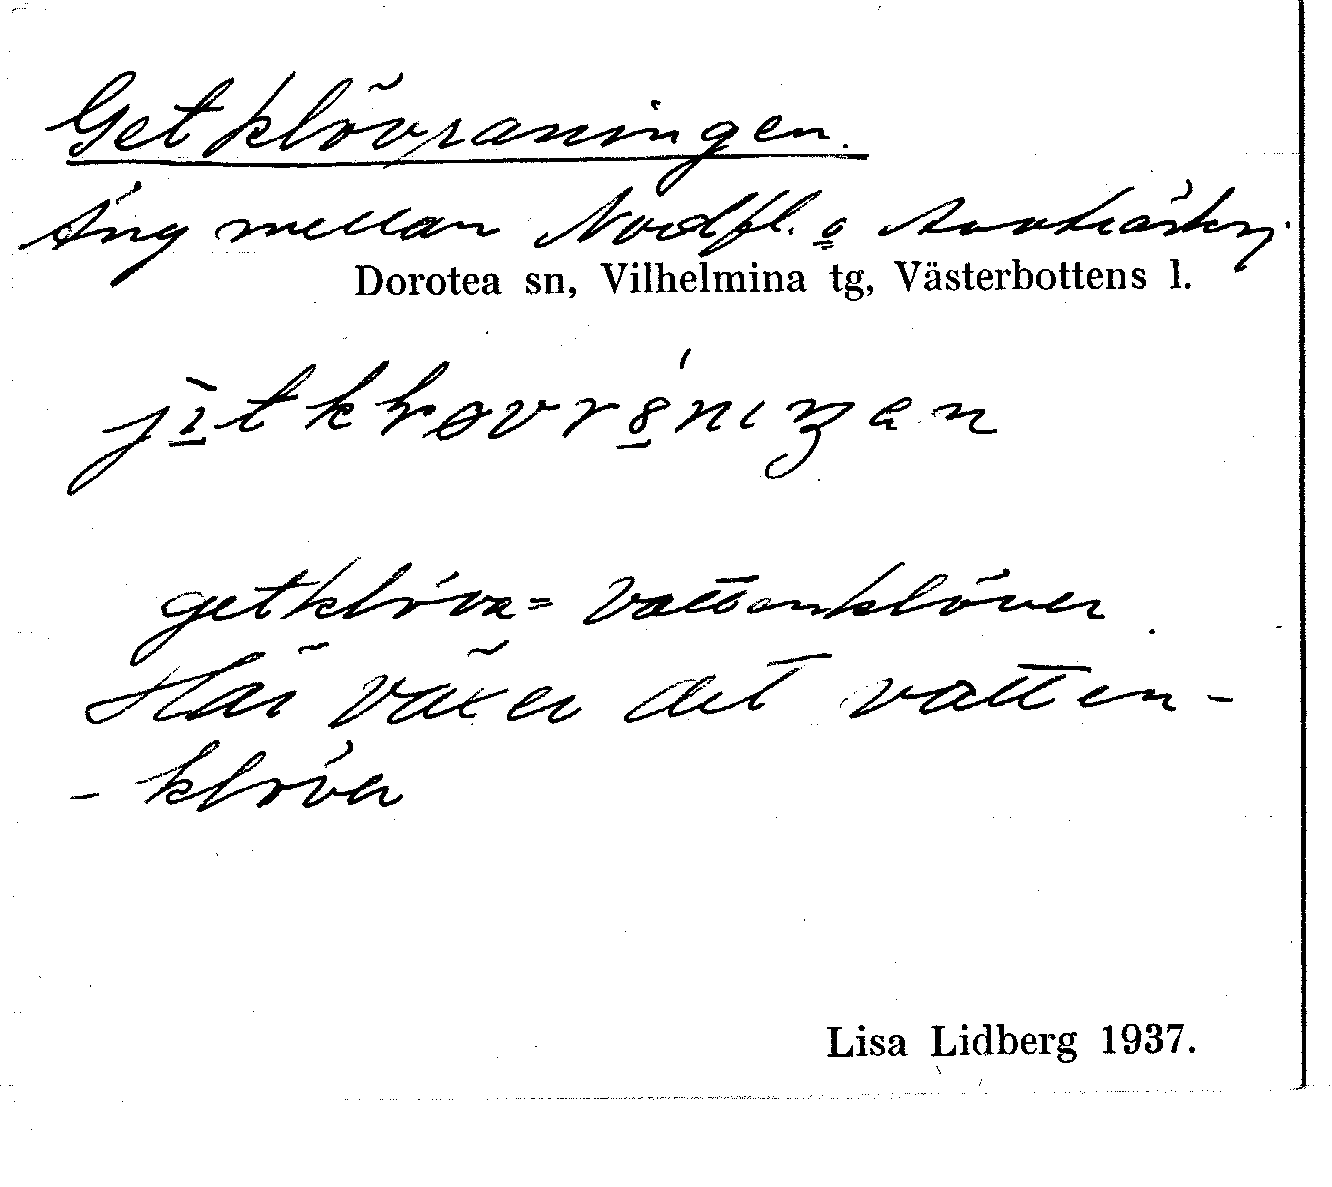 Getklövraningen.
Äng mellan Nordfl. o
Dorotea sn, Vilhelmina tg, Västerbottens l.
getklöva = Vattenklöver
Här växer det vatten-
- klöver
Lisa Lidberg 1937.